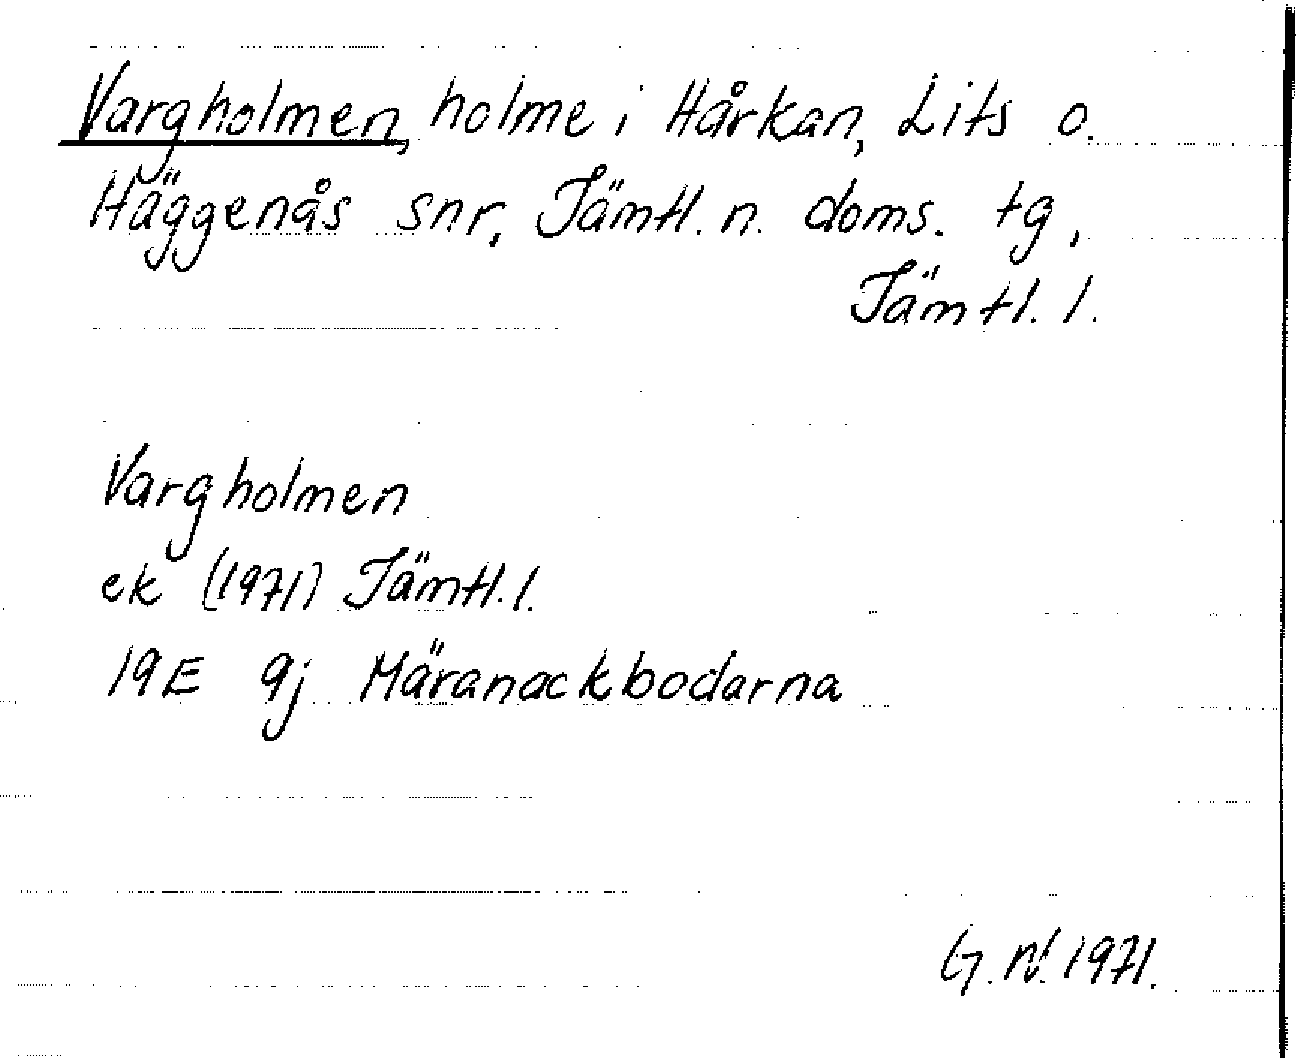 Vargholmen, holme i Hårkan, Lits o.
Häggenås snr, Jämtl. n. doms. tg,
Jämtl. l.
Vargholmen
ek (1971) Jämtl. l.
19E 9j Märanackbodarna
G. N. 1971.